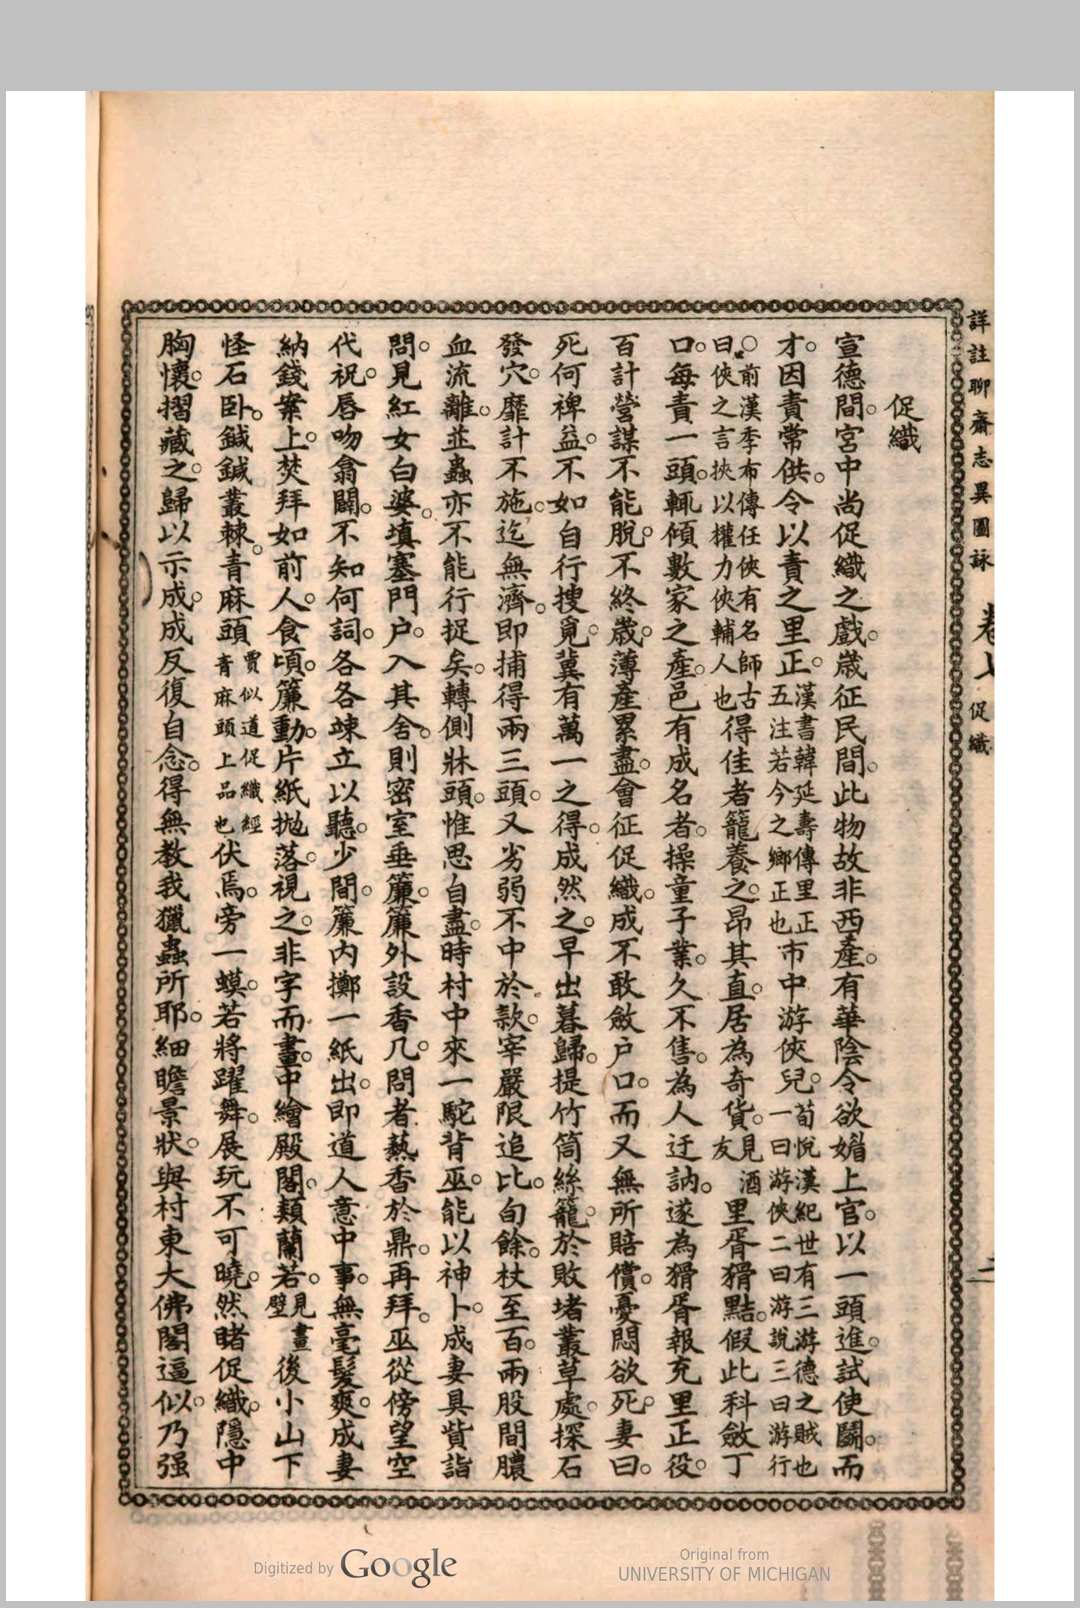 詳註聊齋志異圖詠 卷七 促織 二
促織
宣德間。宮中尚促織之戲。歲征民間。此物故非西產。有華陰令欲媚上官。以一頭進。試使鬬。而
才。因責常供。令以責之里正。漢書韓延壽傳里正五注若今之鄉正也市中游俠兒。荀悅漢紀世有三游德之賊也一曰游俠二曰游說三曰游行
○前漢季布傳任俠有名師古曰俠之言挾以權力俠輔人也得佳者籠養之。昂其直。居為奇貨。見酒友里胥猾黠。假此科斂丁
口。每責一頭。輒傾數家之產。邑有成名者。操童子業。久不售。為人迂訥。遂為猾胥報充里正役。
百計營謀不能脫。不終歲。薄產累盡。會征促織。成不敢斂户口。而又無所賠償。憂悶欲死。妻曰。
死何裨益。不如自行搜覓。冀有萬一之得。成然之。早出暮歸。提竹筒絲籠。於敗堵叢草處。探石
發穴。靡計不施。迄無濟。即捕得兩三頭。又劣弱不中於款。宰嚴限追比。旬餘。杖至百。兩股間膿
血流離。並蟲亦不能行捉矣。轉側牀頭。惟思自盡。時村中來一駝背巫。能以神卜。成妻具貲詣
問。見紅女白婆。填塞門户。入其舍。則密室垂簾。簾外設香几。問者爇香於鼎。再拜。巫從傍望空
代祝。唇吻翕闢。不知何詞。各各竦立以聽。少間。簾內擲一紙出。即道人意中事。無毫髮爽。成妻
納錢案上。焚拜如前人。食頃。簾動。片紙拋落。視之。非字而畫。中繪殿閣。類蘭若。見畫壁後小山下
怪石卧。鍼鍼叢棘。青麻頭賈似道促織經青麻頭上品也伏焉。旁一蟆。若將躍舞。展玩不可曉。然睹促織。隱中
胸懷。摺藏之。歸以示成。成反復自念。得無教我獵蟲所耶。細瞻景狀。與村東大佛閣逼似。乃强
Digitized by Google
Original from
UNIVERSITY OF MICHIGAN